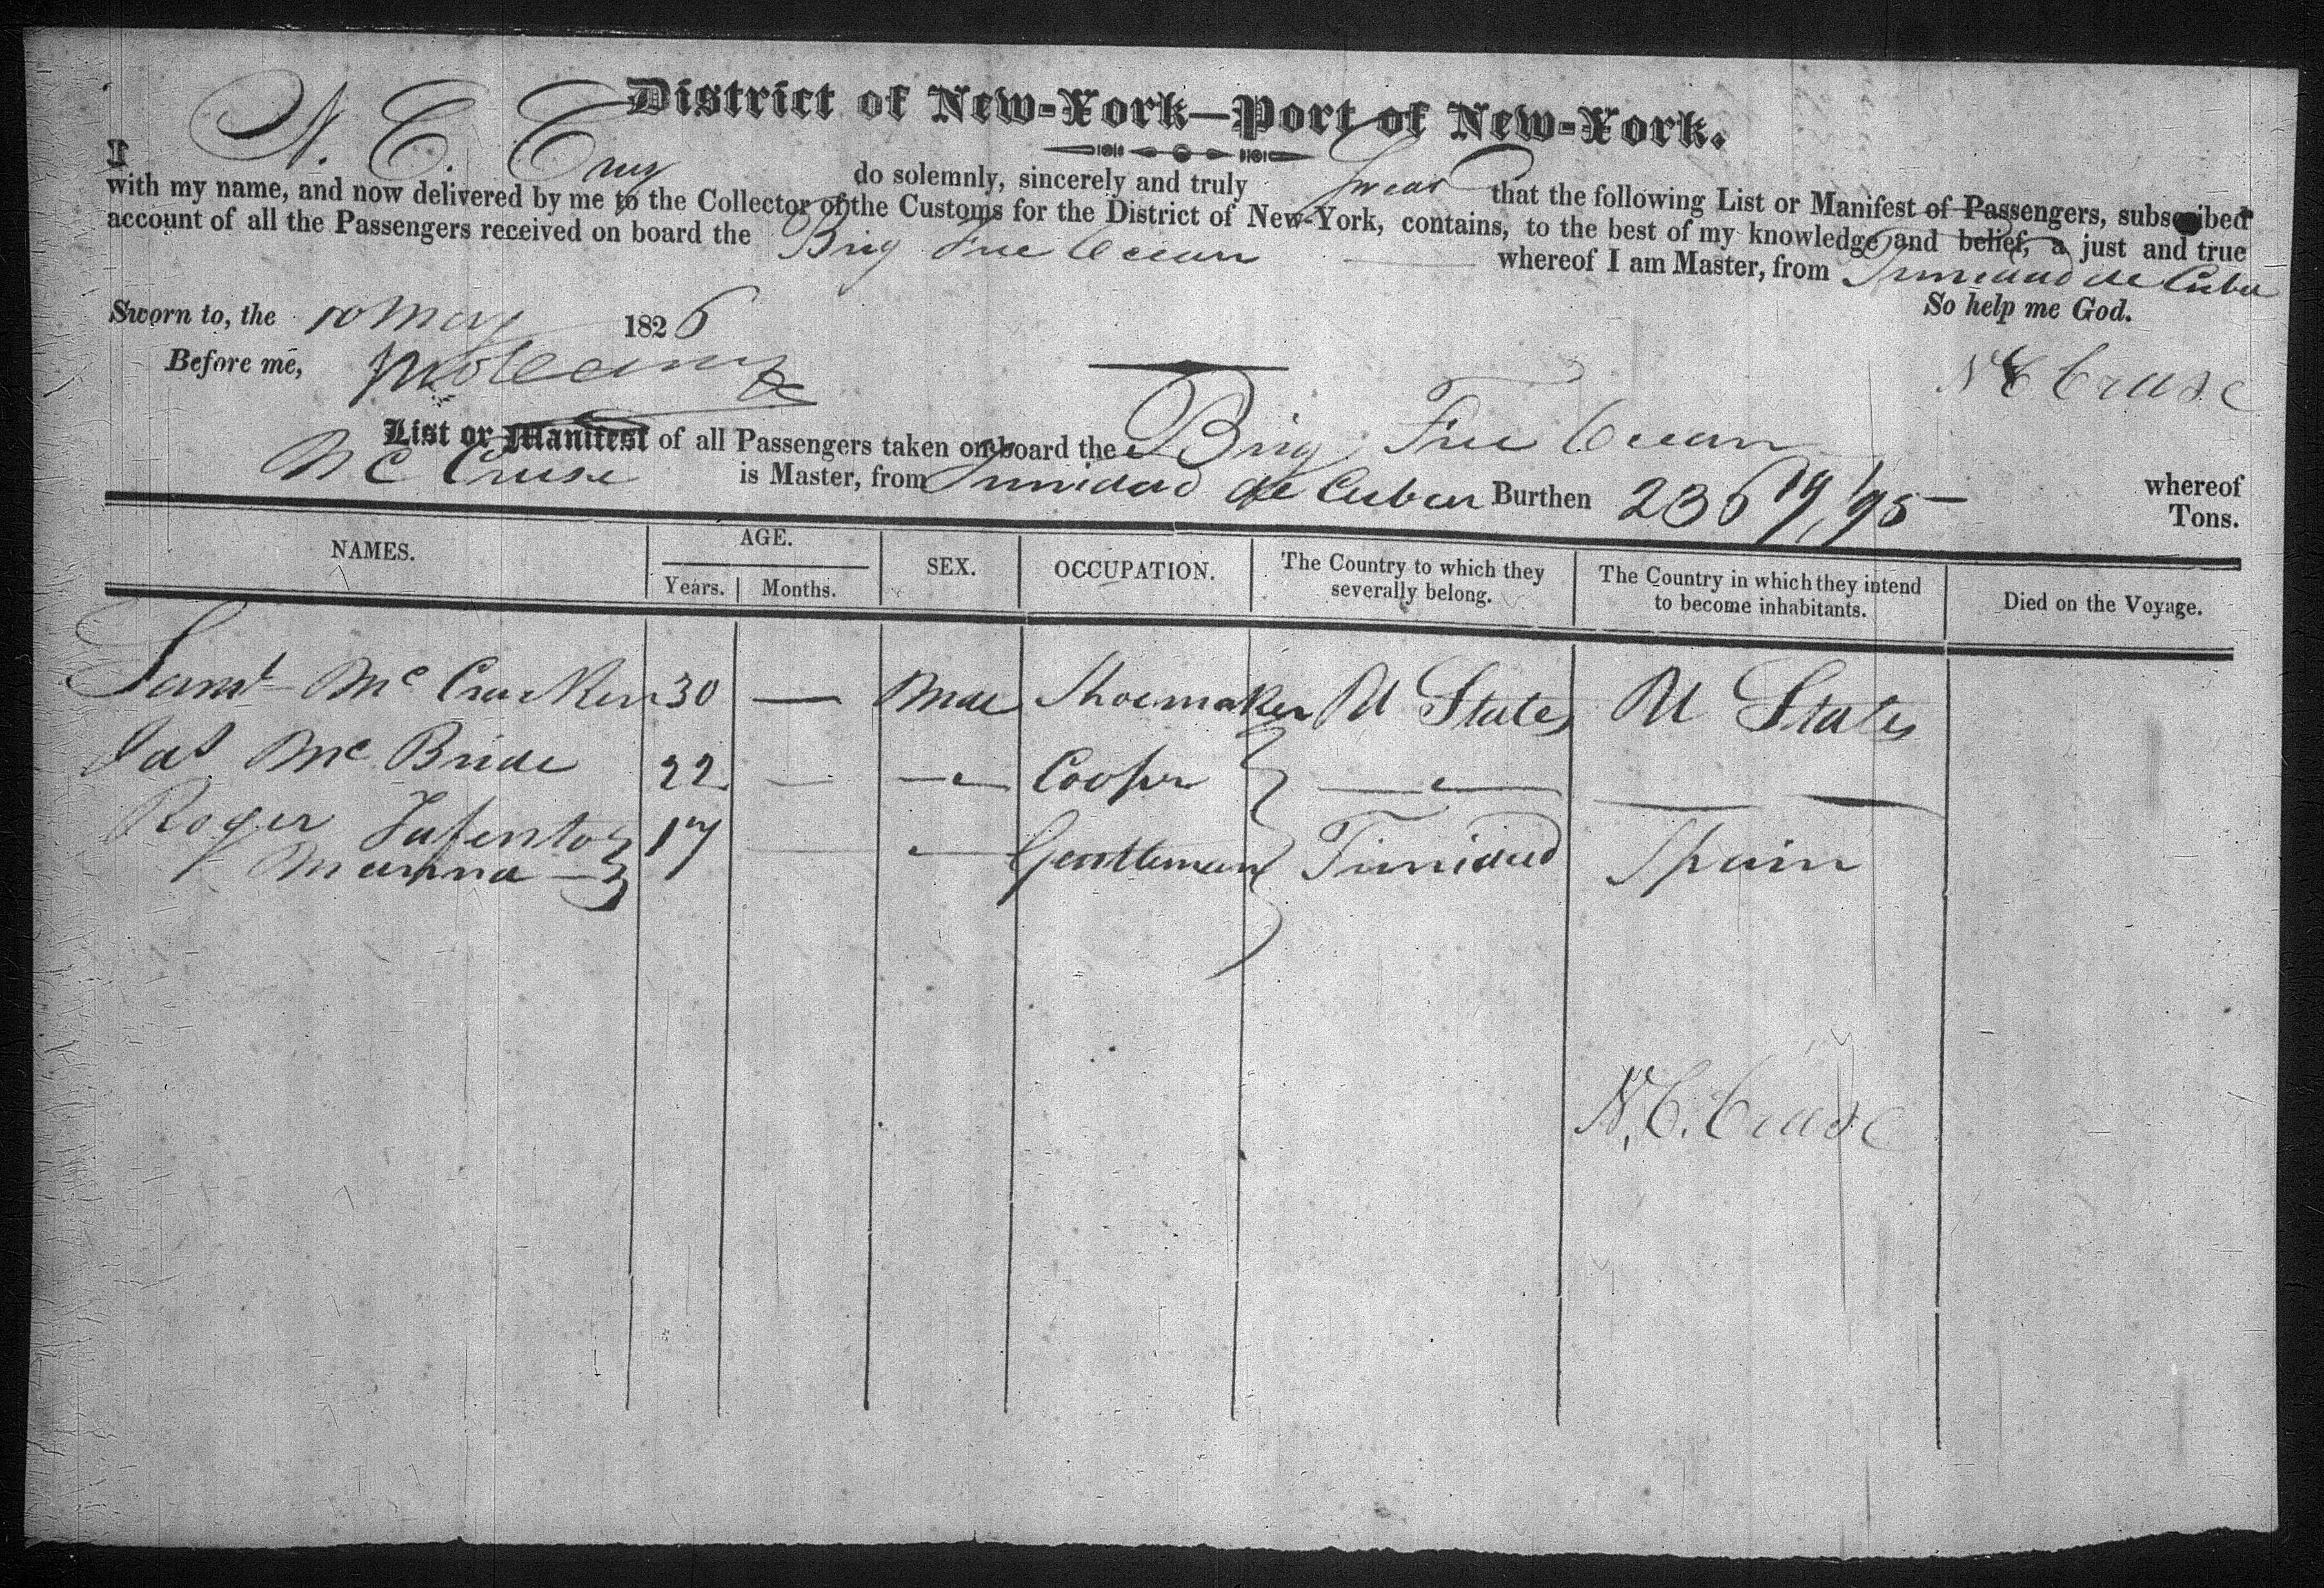 District of New-York—Port of New-York.
I N. C. do solemnly, sincerely and truly Swear that the following List or Manifest of Passengers, subscribed
with my name, and now delivered by me to the Collector of the Customs for the District of New-York, contains, to the best of my knowledge and belief, a just and true
account of all the Passengers received on board the Brig Free Ocean whereof I am Master, from Trinidad de Cuba
So help me God.
Sworn to, the 10 May 1826
Before me,
N C Cruse
List or Manifest of all Passengers taken on board the Brig Free Ocean whereof
N C Cruse is Master, from Trinidad de Cuba Burthen 236 19/95 Tons.
NAMES. AGE. SEX. OCCUPATION. The Country to which they severally belong. The Country in which they intend to become inhabitants. Died on the Voyage.
Years. Months.
Saml Mc Cracken 30 — Male Shoemaker U States U States
Jas Mc Bride 22 — — Cooper — —
Roger 17 — — Gentleman Trinidad Spain
N. C. Cruse